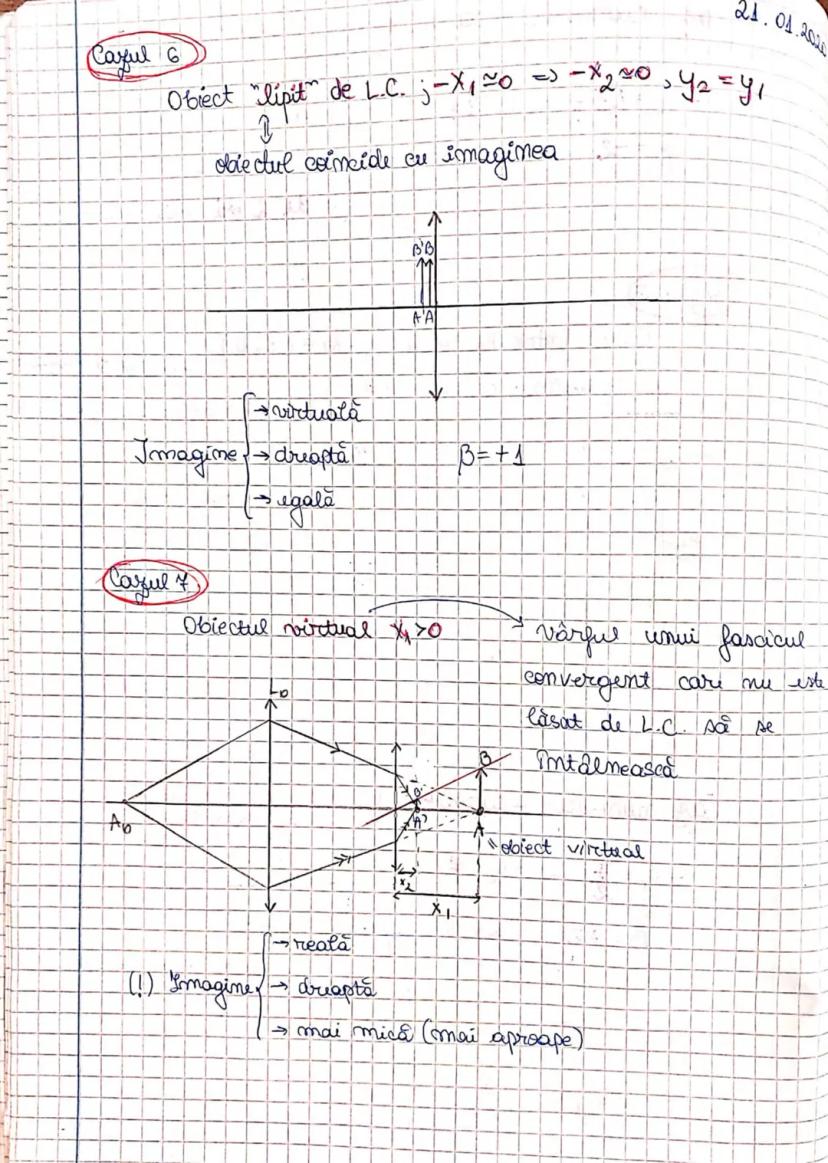 21.01.2020
Cazul 6
Obiect "lipit" de L.C. ; -x₁≃0 => -x₂≃0, y₂ = y₁
⇕
obiectul coincide cu imaginea
B'B
A'A
→ virtuală
Imagine → dreaptă β=+1
→ egală
Cazul 7
Obiectul virtual x₁>0 → vârful unui fascicul
convergent care nu este
lăsat de L.C. să se
întâlnească
L₀
B
B'
A₀
A'
A
"obiect virtual
x₂
x₁
→ reală
(!) Imagine → dreaptă
→ mai mică (mai aproape)